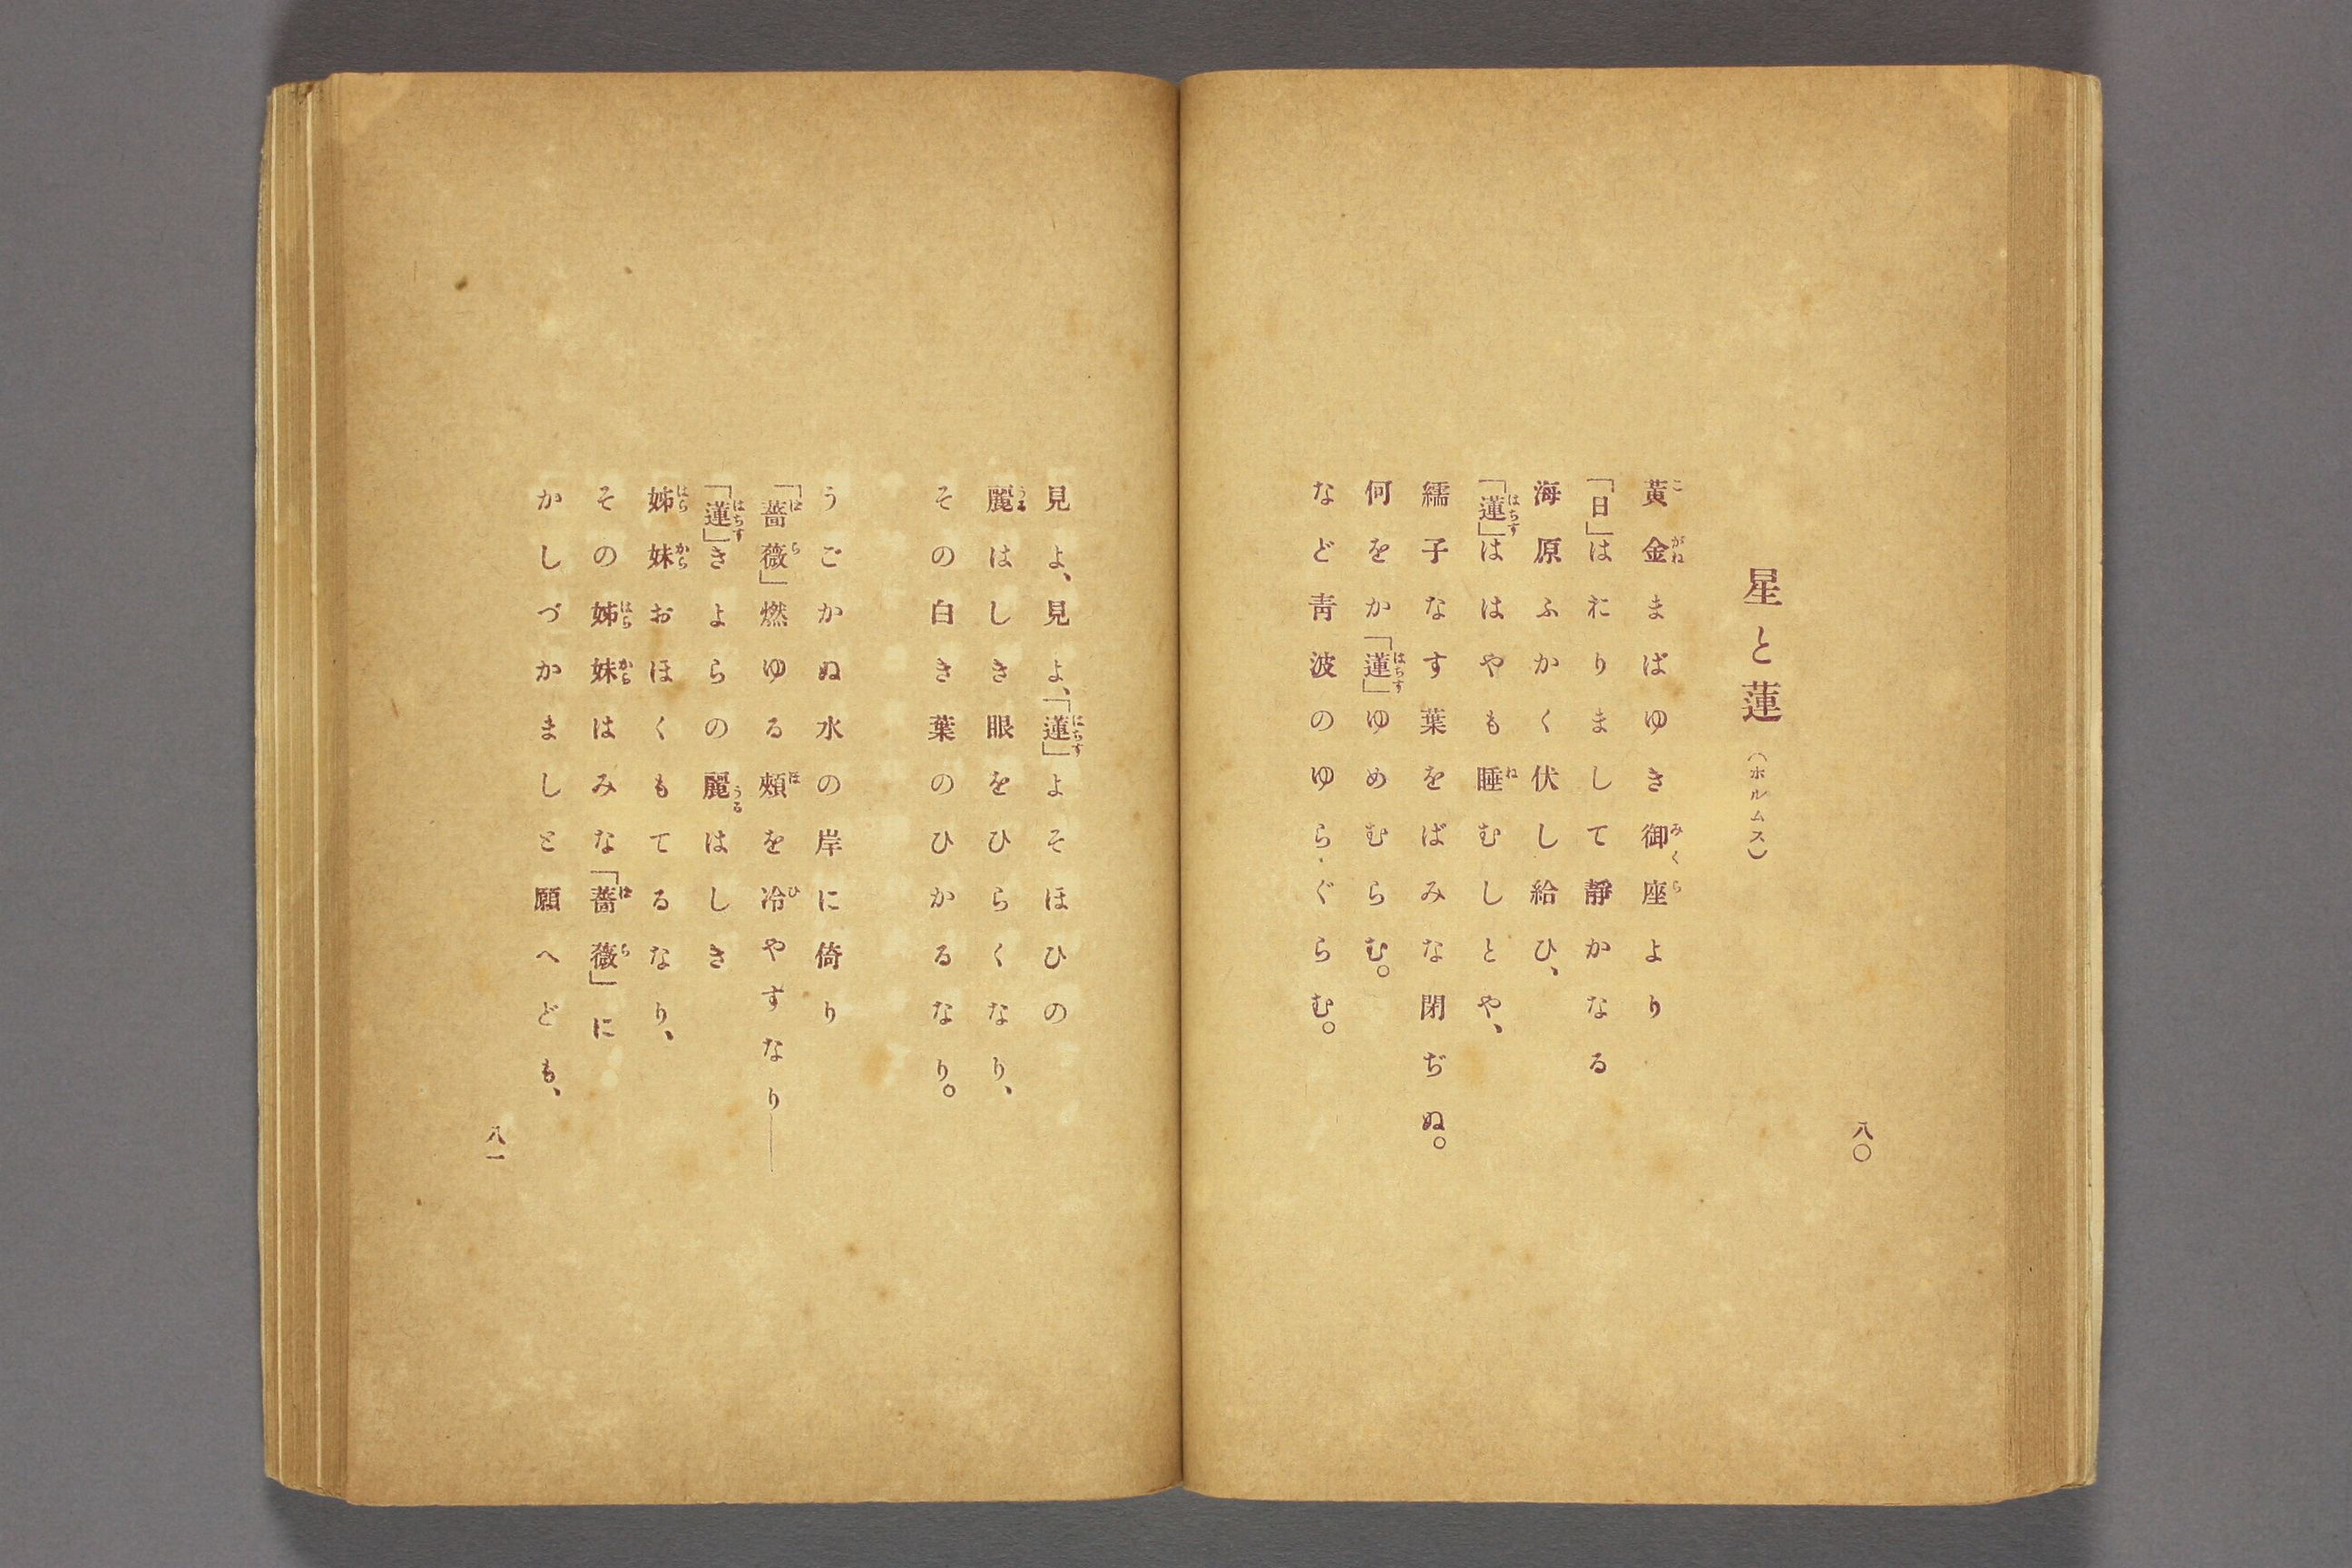 八〇
星と蓮（ホルムス）
黃金まばゆき御座より
「日」はおりまして靜かなる
海原ふかく伏し給ひ、
「蓮」ははやも睡むしとや、
繻子なす葉をばみな閉ぢぬ。
何をか「蓮」ゆめむらむ。
など靑波のゆらぐらむ。
見よ、見よ、「蓮」よそほひの
麗はしき眼をひらくなり、
その白き葉のひかるなり。
うごかぬ水の岸に倚り
「薔薇」燃ゆる頰を冷やすなり――
「蓮」きよらの麗はしき
姊妹おほくもてるなり、
その姊妹はみな「薔薇」に
かしづかましと願へども、
八一